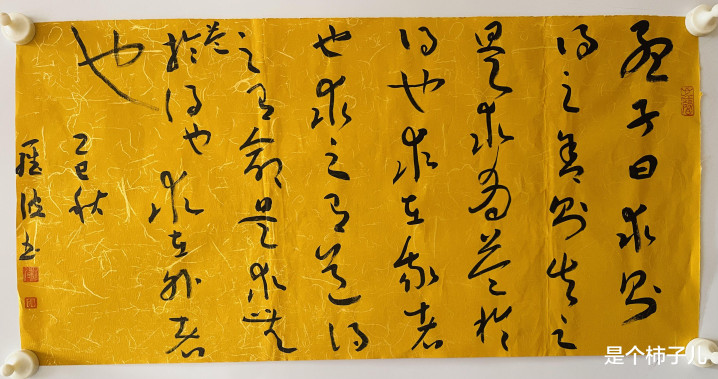 孟子曰求则
得之舍则失之
是求有益於
得也求在我者
也求之有道得
之有命是求无
益於得也求在外者
也
乙巳秋
波书
是个柿子儿